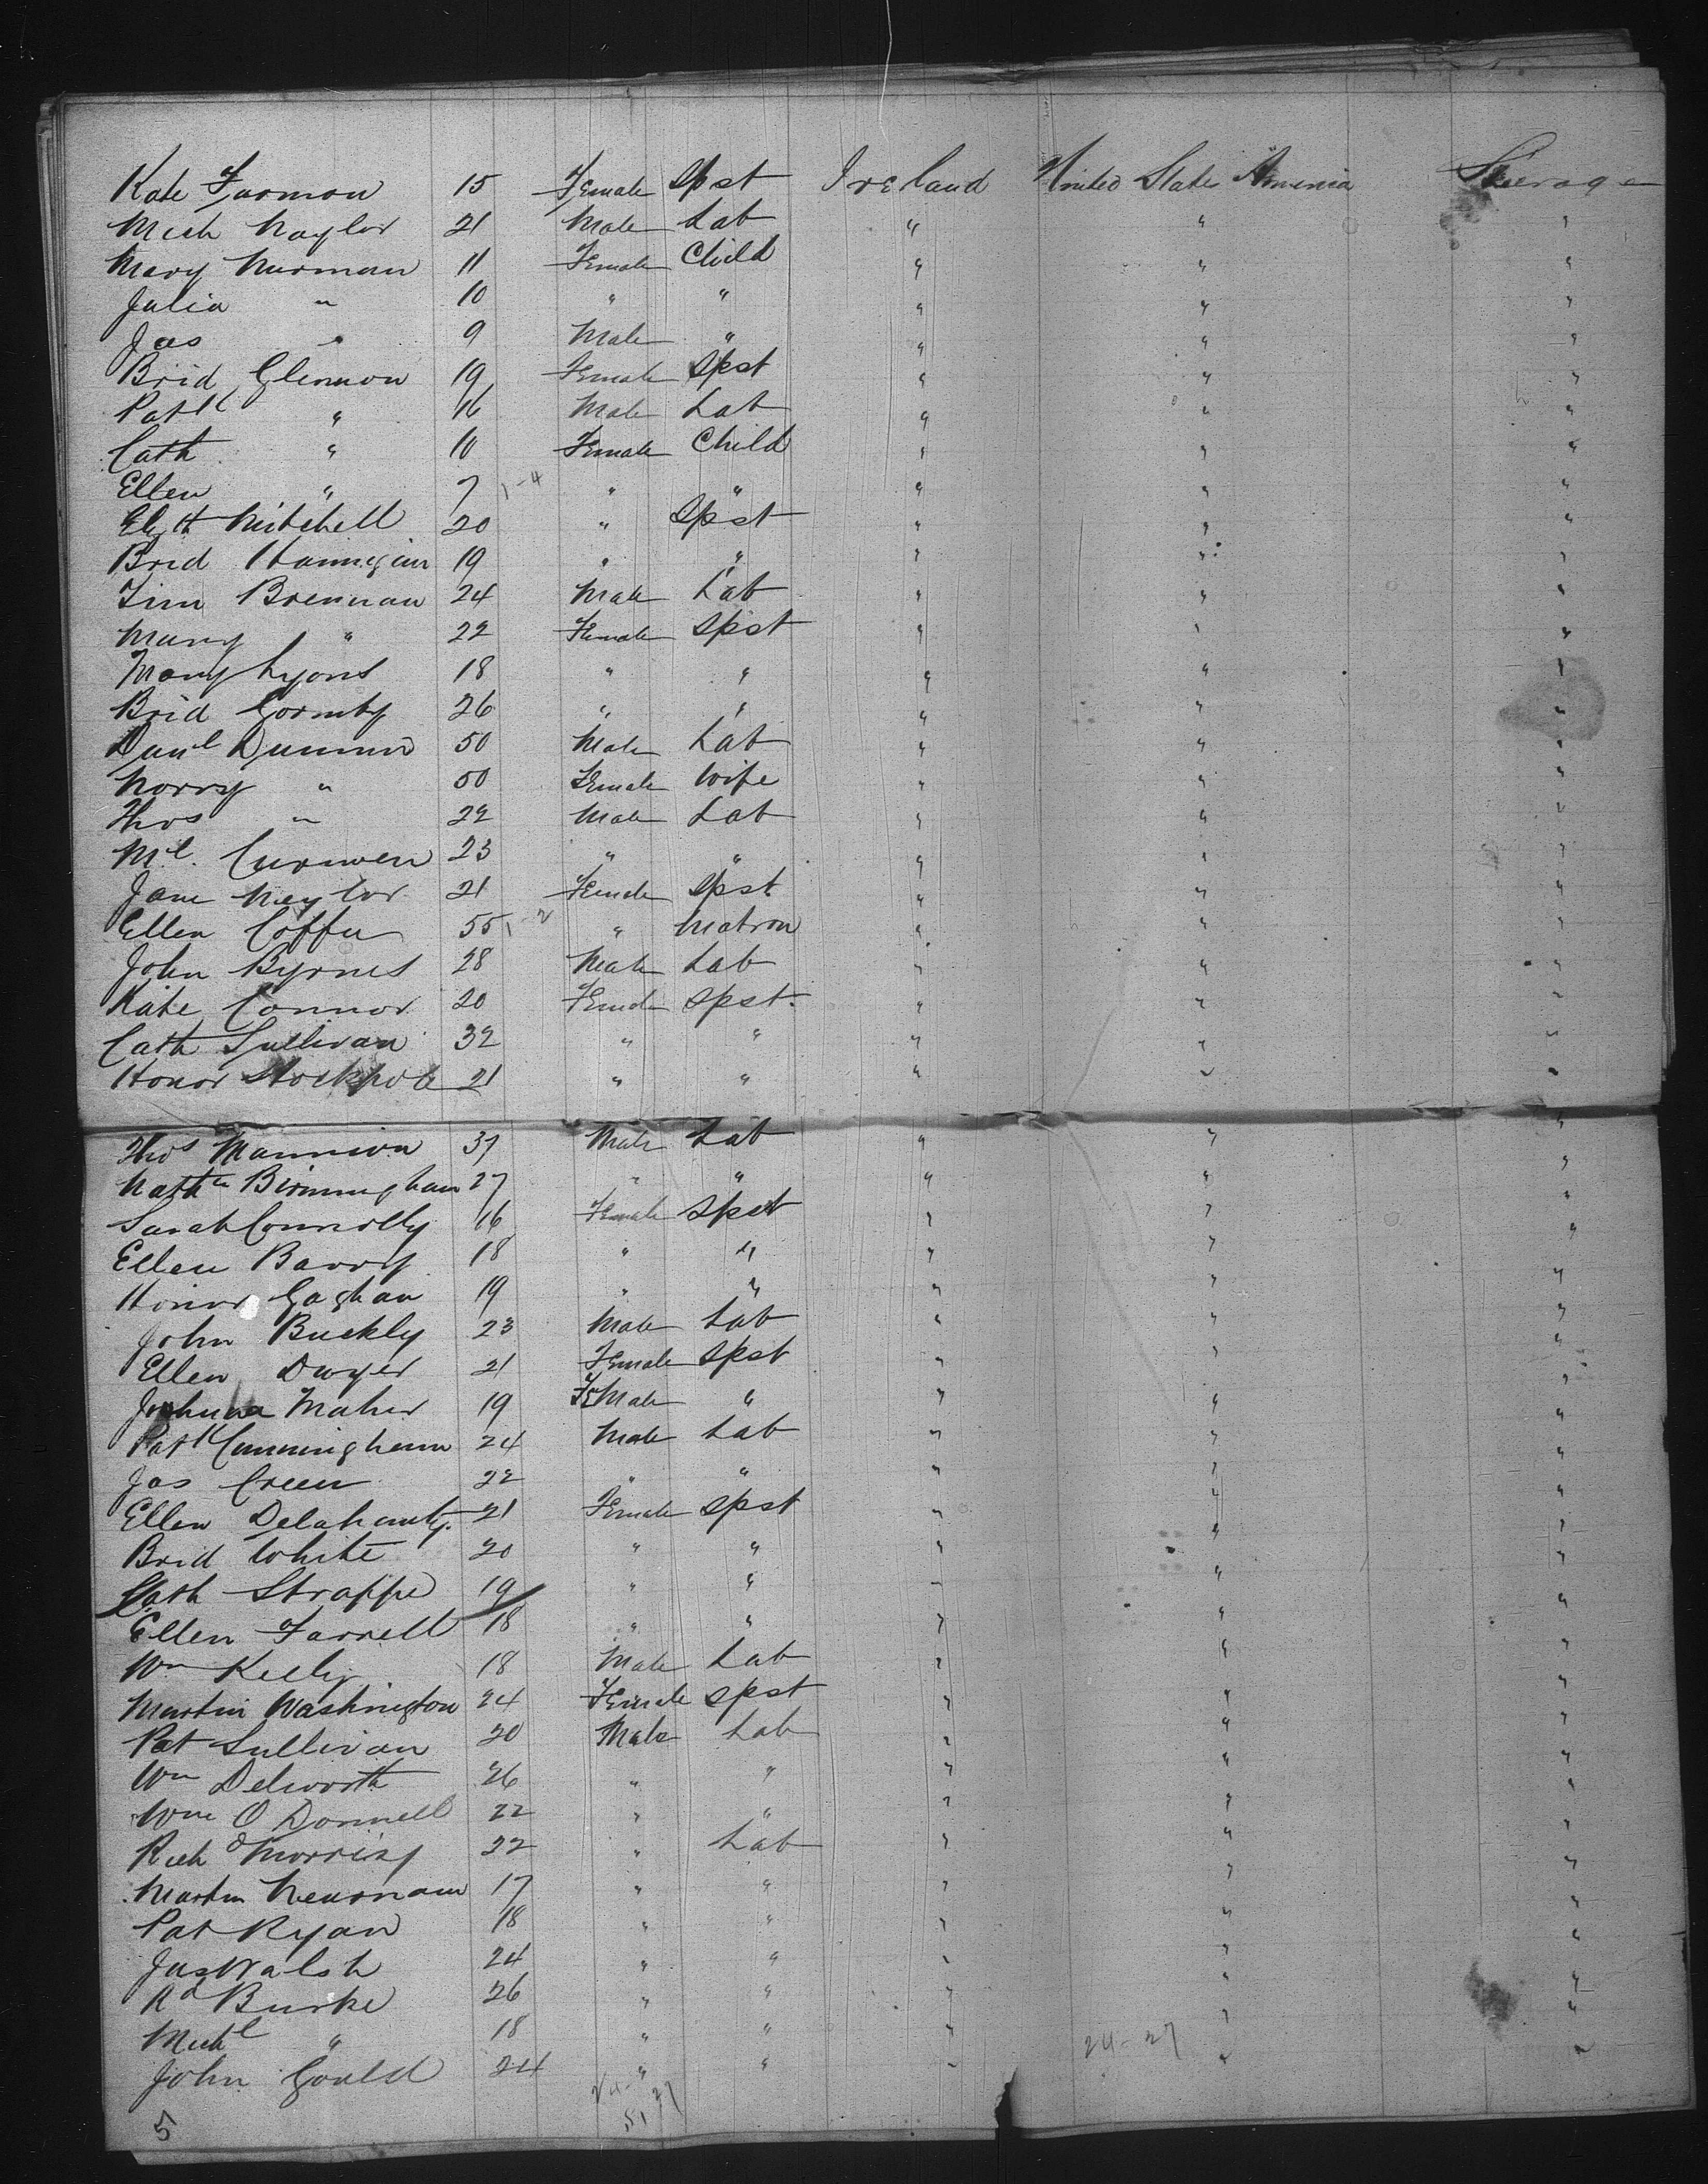 Kate Farmon 15 Female Spst Ireland United States America Steerage
Mich Naylor 21 Male Lab " " "
Mary Nurman 11 Female Child " " "
Julia " 10 " " " " "
Jas " 9 Male " " " "
Brid Glennon 19 Female Spst " " "
Patk " 16 Male Lab " " "
Cath " 10 Female Child " " "
Ellen " 7 1-4 " " " " "
Elizth Mitchell 20 " Spst " " "
Brid Hannegan 19 " " " " "
Tim Brennan 24 Male Lab " " "
Mary " 22 Female Spst " " "
Mary Lyons 18 " " " " "
Brid Gormby 26 " " " " "
Danl 50 Male Lab " " "
Norry " 50 Female Wife " " "
Thos " 22 Male Lab " " "
Ml. Curowen 23 " " " " "
Jane Neylor 21 Female Spst " " "
Ellen Coffee 55 1-2 " Matron " " "
John Byrnes 28 Male Lab " " "
Kate Connor 20 Female Spst. " " "
Cath Sullivan 32 " " " " "
Honor Stockpole 21 " " " " "
Thos Mannion 37 Male Lab " " "
Birmingham 27 " " " " "
Sarah Connolly 16 Female Spst " " "
Ellen Barry 18 " " " " "
Honor Gaghan 19 " " " " "
John Buckly 23 Male Lab " " "
Ellen Dwyer 21 Female Spst " " "
Johanna Maher 19 FeMale " " " "
Patk Cunningham 24 Male Lab " " "
Jas Creen 22 " " " " "
Ellen Delahunty. 21 Female Spst " " "
Brid White 20 " " " " "
Cath Strappe 19 " " " " "
Ellen Farrell 18 " " " " "
Wm Kiely 18 Male Lab " " "
Martin Washington 24 Female Spst " " "
Pat Sullivan 20 Male Lab " " "
Wm Delworth 26 " " " " "
Wm O Donnell 22 " " " " "
Richd Morrisy 22 " Lab " " "
Martin Neuonam 17 " " " " "
Pat Ryan 18 " " " " "
Jas Walsh 24 " " " " "
Rd Burke 26 " " " " "
Michl " 18 " " " " "
John Gould 24 " " " 24-27 " "
24- 27
5 51